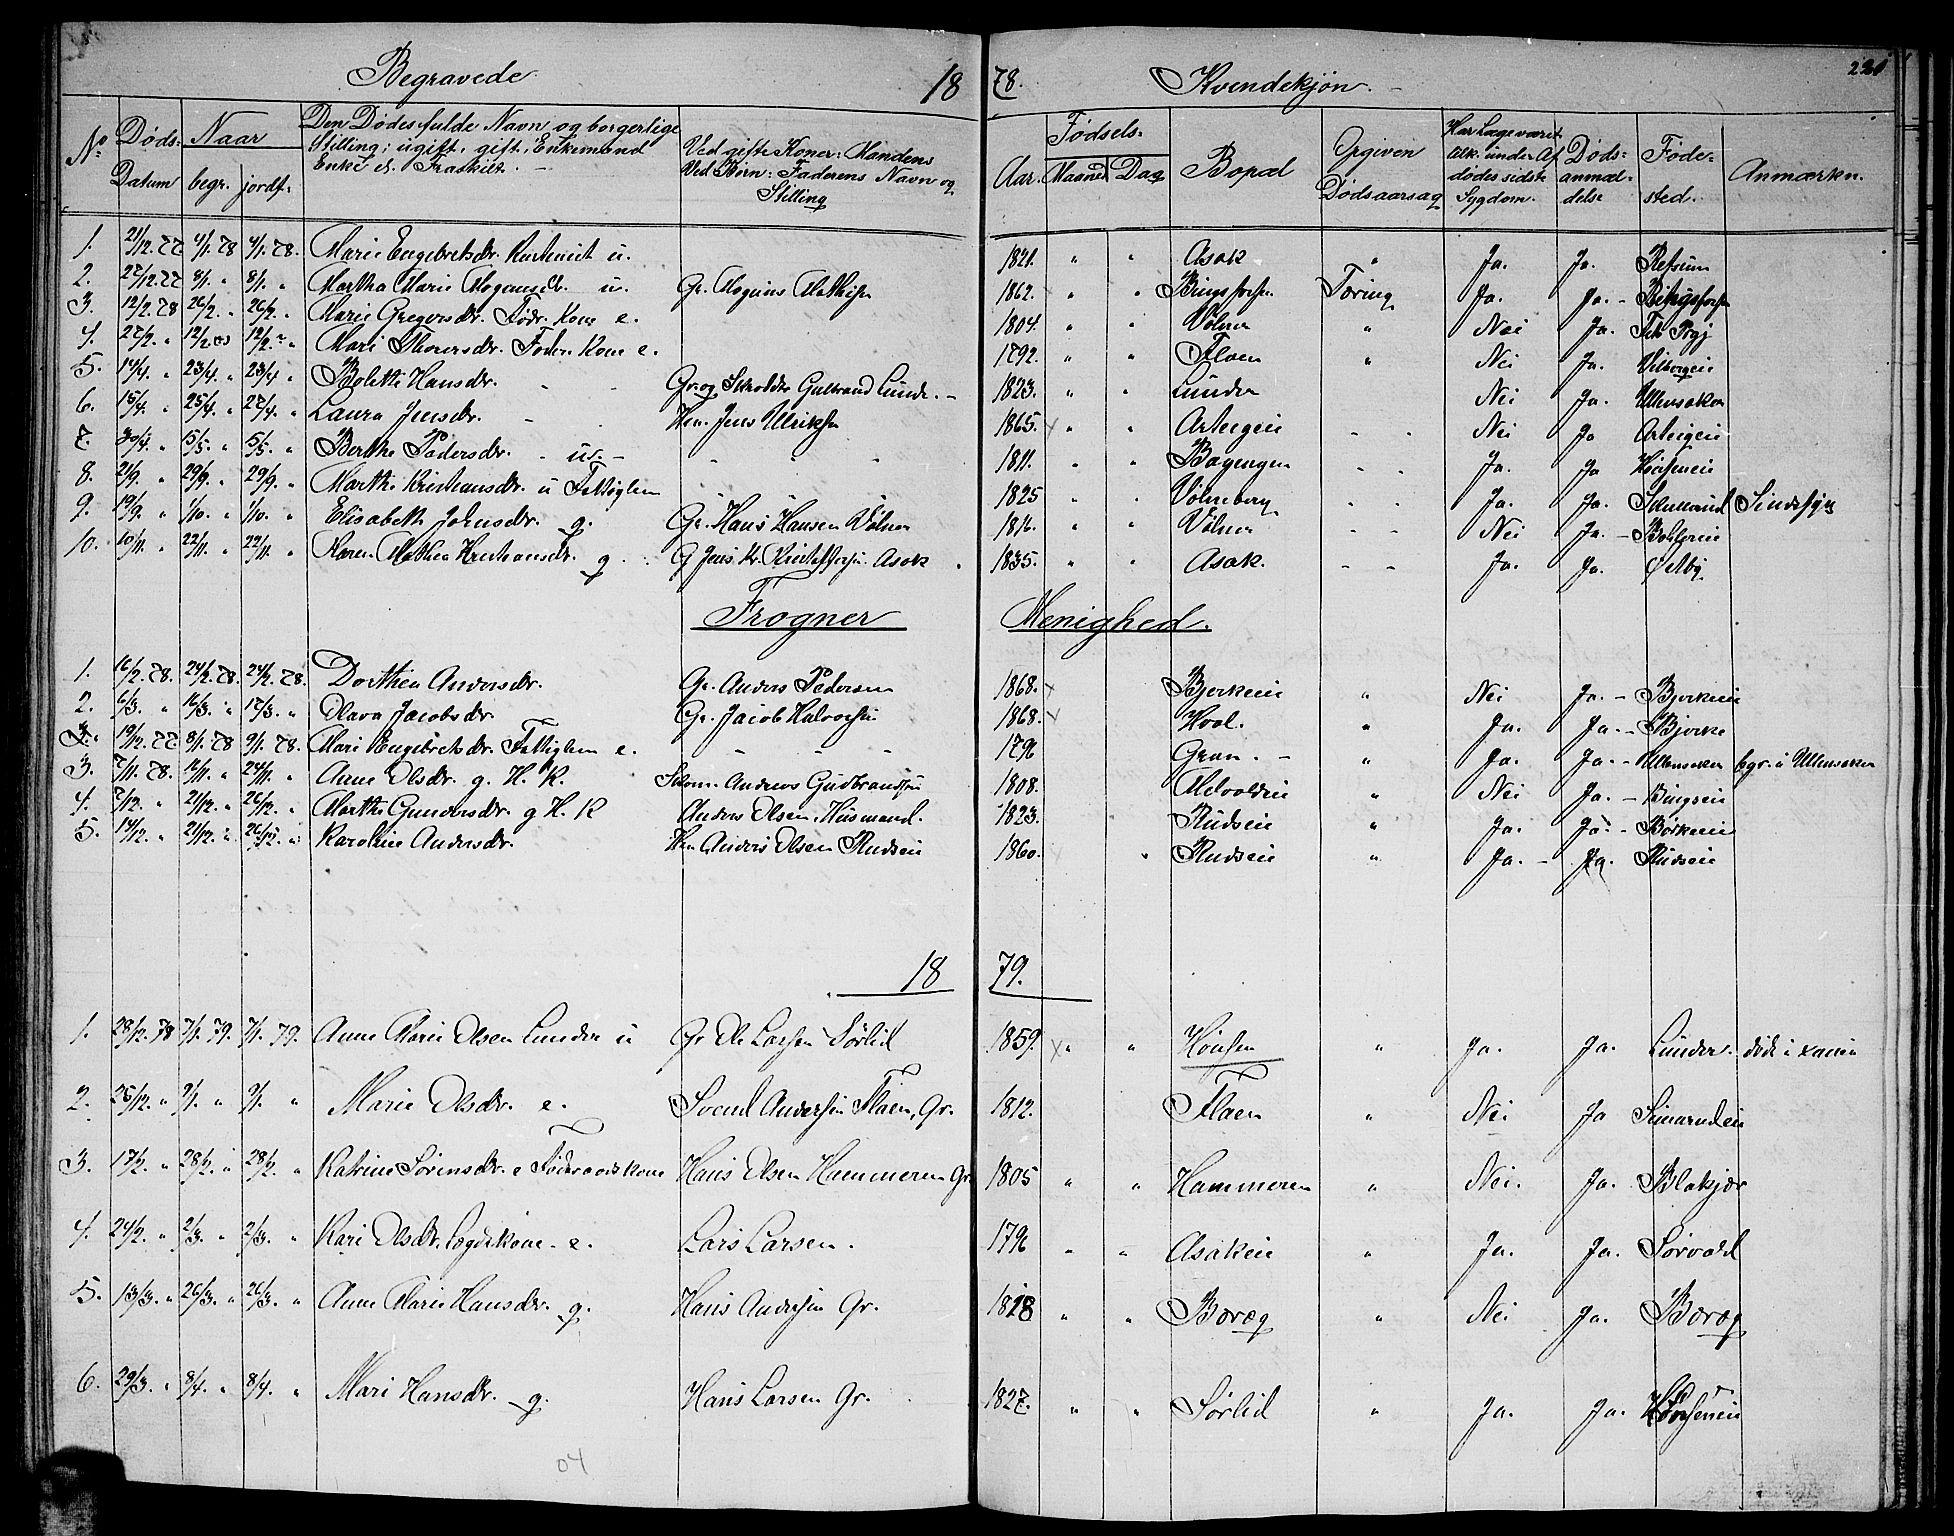 Begravede 18 78. Kvindekjøn. 221
No Døds-Datum Naar begr. jordf. Den Dødes fulde Navn og borgerlige Stilling; ugift, gift, Enkemand Enke el. Fraskilt. Ved gifte Koner: Mandens Ved Børn: Faderens Navn og Stilling Fødsels- Aar. Maaned Dag Bopæl Opgiven Dødsaarsag Har Læge været under Afdødes sidste Sygdom. Døds-anmeldelse Fødested. Anmærkn.
1. 21/12. 77 4/1. 78 4/1. 78. Marie Engebretsdr. u. 1821. " " Asak " Ja. Ja. Refsum
2. 27/12. 77 8/1. " 8/1. " Martha Marie Mogensdr. u. Gr. Mogens Mathisen 1862. " " Bingsfossen Tæring Ja. Ja. - Bingsfossen
3. 12/2. 78 26/2. " 26/2. " Marie Gregersdr. Fødr. Kone e. 1804. " " Vølner " Nei Ja.
4. 27/2. " 12/2. " Mari Thorersdr. Føder. Kone e. 1792. " " Flaen " Nei Ja. Vilbergeie
5. 14/4. " 23/4. " 23/4. " Bolette Hansdr. Gr. og Skoledr Gulbrand Lunde. - 1823. " " Lunder Nei Ja. Ullensaker
6. 15/4. " 25/4. " 27/4. " Laura Jensdr. - Hm. Jens Ulriksen 1865. x " Arteigeie - - Nei Ja Arteigeie
7. 30/4. " 15/5. " 5/5. " Berthe Pedersdr. - u. - 1811. " " Bagengen - - Ja. Ja Hønseneie
8. 21/9. " 29/9. " 29/9. " Marthe Kristiansdr. u Fattiglem 1825 " " Vølneberg - - Ja. Ja. Skulterud Sindssyg
9. 19/9. " 1/10. " 1/10. " Elisabeth Johnsdr. g. Gr. Hans Hansen Vølner 1816. " " Vølner - - Nei Ja. -
10. 10/11. " 22/11. " 22/11. " Karen Mathea Kristiansdr. g. G Jens Kr. Kristoffersen Asak 1835. " " Asak. - - Ja. Ja. Østby
Frogner Menighed.
1. 16/2. 78. 24/2. 78. 24/2. 78. Dorthea Andersdr. Gr. Anders Pedersen 1868. x Bjerkeeie " Nei Ja. - Bjerkeeie
2. 6/3. " 16/3. " 17/3. " Olava Jacobsdr. Gr. Jacob Halvorsen 1868. x Hval. " Ja. Ja. - Bjerke
3. 19/12. 77. 8/1. 78 9/1. 78. Mari Engebretsdr. Fattiglem e. - - - 1796 Gran. - " Ja. Ja. - Ullensaker bgr. i Ullensaker
3. 7/11. 78. 16/11. " 24/11. " Anne Olsdr. g. H. K. Andreas Gudbrandsen 1808. Melvoldeie " Nei Ja. - Bingseie
4. 7/12. " 21/12. " 26/12. " Marthe Gundersdr. g H. K Anders Olsen, Husmand. 1823. Rudseie " Ja. Ja. - Børkeeie
5. 14/12. " 21/12. " 26/12. " Karoline Andersdr. Hm Anders Olsen Rudseie 1860. x " Rudseie " Ja. - Ja. Rudseie
18 79.
1. 28/12. 78 7/1. 79. 7/1. 79. Anne Marie Olsen Lunder u Gr Ole Larsen Sørlid 1859. x " " Hønsen " Ja. Ja. Lunder. døde i
2. 25/12. " 9/1. " 9/1. " Marie Olsdr. e. Svend Andersen Flaen, Gr. 1812. Flaen " Nei Ja Simarudeie
3. 17/2. " 28/2. " 28/2. " Katrine Sørensdr. e Føderaadskone Hans Olsen Hammeren Gr. 1805 " " Hammeren " Nei. Ja. Blakjær
4. 24/2. " 2/3. " 2/3. " Kari Olsdr. Lægdskone. e. Lars Larsen. 1796 " " Asakeie " Ja. Ja. Sørvald
5. 13/3. " 26/3. " 26/3. " Anne Marie Hansdr. g. Hans Andersen Gr. 1828 " " Boræg " Nei Ja. Boræg
6. 29/3. " 8/4. " 8/4. " Mari Hansdr. g. Hans Larsen Gr. 1827. " " Sørlid " Ja. Ja. Hønseneie
04